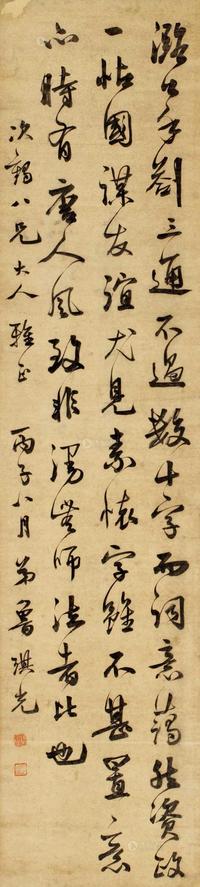 潞公手劄三通不過數十字而詞意藹然資政
一帖國謀友誼尤見素懷字雖不甚置意
亦時有唐人風致非漫無師法者比也
次鶴八兄大人雅正 丙子八月 弟魯琪光